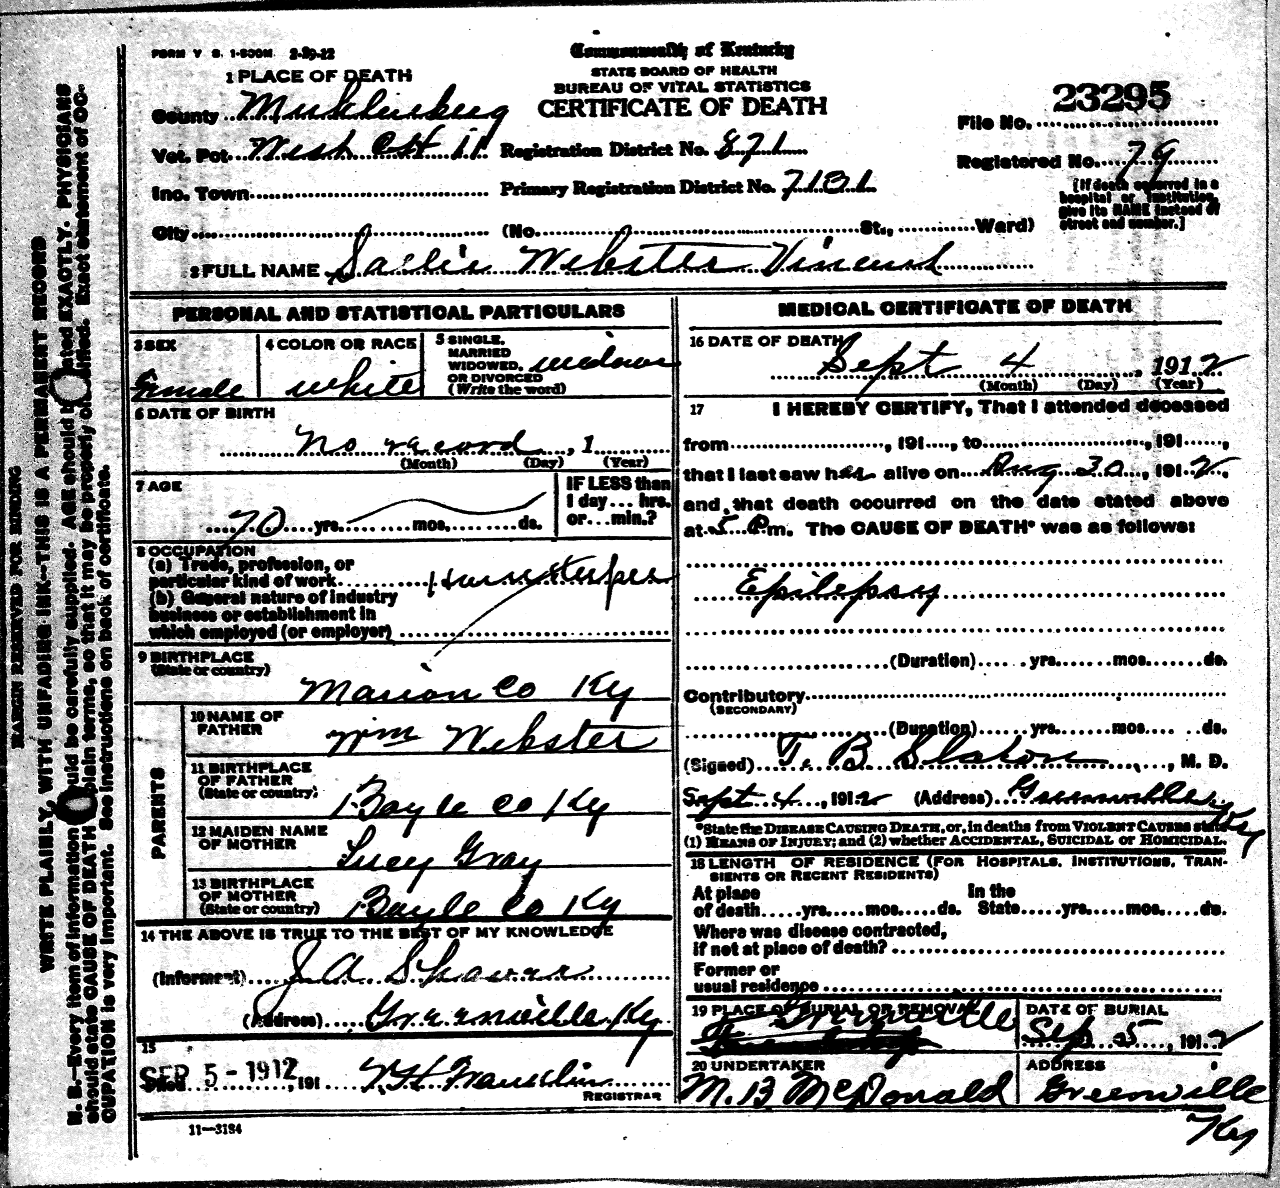 FORM V. S. 1-500M. 2-29-12
Commonwealth of Kentucky
STATE BOARD OF HEALTH
BUREAU OF VITAL STATISTICS
CERTIFICATE OF DEATH
1 PLACE OF DEATH
County Muhlenburg
Vot. Pct. West C H 11
Inc. Town
City
Registration District No. 871
Primary Registration District No. 7131
(No. St., Ward)
23295
File No.
Registered No. 79
[If death occurred in a
hospital or institution,
give its NAME instead of
street and number.]
2 FULL NAME Sallie Webster Vincent
PERSONAL AND STATISTICAL PARTICULARS
3 SEX
Female
4 COLOR OR RACE
white
5 SINGLE,
MARRIED
WIDOWED,
OR DIVORCED
(Write the word)
widow
6 DATE OF BIRTH
No record, 1
(Month) (Day) (Year)
7 AGE
70 yrs. mos. ds.
IF LESS than
1 day... hrs.
or...min.?
8 OCCUPATION
(a) Trade, profession, or
particular kind of work Housekeeper
(b) General nature of industry
business or establishment in
which employed (or employer)
9 BIRTHPLACE
(State or country)
Marion Co Ky
PARENTS
10 NAME OF
FATHER
Wm Webster
11 BIRTHPLACE
OF FATHER
(State or country)
Boyle Co Ky
12 MAIDEN NAME
OF MOTHER
Lucy Gray
13 BIRTHPLACE
OF MOTHER
(State or country)
Boyle Co Ky
14 THE ABOVE IS TRUE TO THE BEST OF MY KNOWLEDGE
(Informant) J A
(Address) Greenville Ky
15
Filed SEP 5 - 1912, 191 Franklin
REGISTRAR
11—3184
MEDICAL CERTIFICATE OF DEATH
16 DATE OF DEATH
Sept 4, 1912
(Month) (Day) (Year)
17 I HEREBY CERTIFY, That I attended deceased
from, 191, to, 191,
that I last saw her alive on Aug 30, 1912,
and that death occurred on the date stated above
at 5 Pm. The CAUSE OF DEATH* was as follows:
Epilepsy
(Duration) yrs. mos. ds.
Contributory
(SECONDARY)
(Duration) yrs. mos. ds.
(Signed) T. B Slaton, M. D.
Sept 4, 1912 (Address) Greenville Ky
*State the DISEASE CAUSING DEATH, or, in deaths from VIOLENT CAUSES state
(1) MEANS OF INJURY; and (2) whether ACCIDENTAL, SUICIDAL or HOMICIDAL.
18 LENGTH OF RESIDENCE (FOR HOSPITALS, INSTITUTIONS, TRAN-
SIENTS OR RECENT RESIDENTS)
At place In the
of death yrs. mos. ds. State yrs. mos. ds.
Where was disease contracted,
if not at place of death?
Former or
usual residence
19 PLACE OF BURIAL OR REMOVAL
Greenville
DATE OF BURIAL
Sep 5, 1912
20 UNDERTAKER
M. B McDonald
ADDRESS
Greenville
Ky
MARGIN RESERVED FOR BINDING
WRITE PLAINLY, WITH UNFADING INK—THIS IS A PERMANENT RECORD
N. B.—Every item of information should be carefully supplied. AGE should be stated EXACTLY. PHYSICIANS
should state CAUSE OF DEATH in plain terms, so that it may be properly classified. Exact statement of OC-
CUPATION is very important. See instructions on back of certificate.